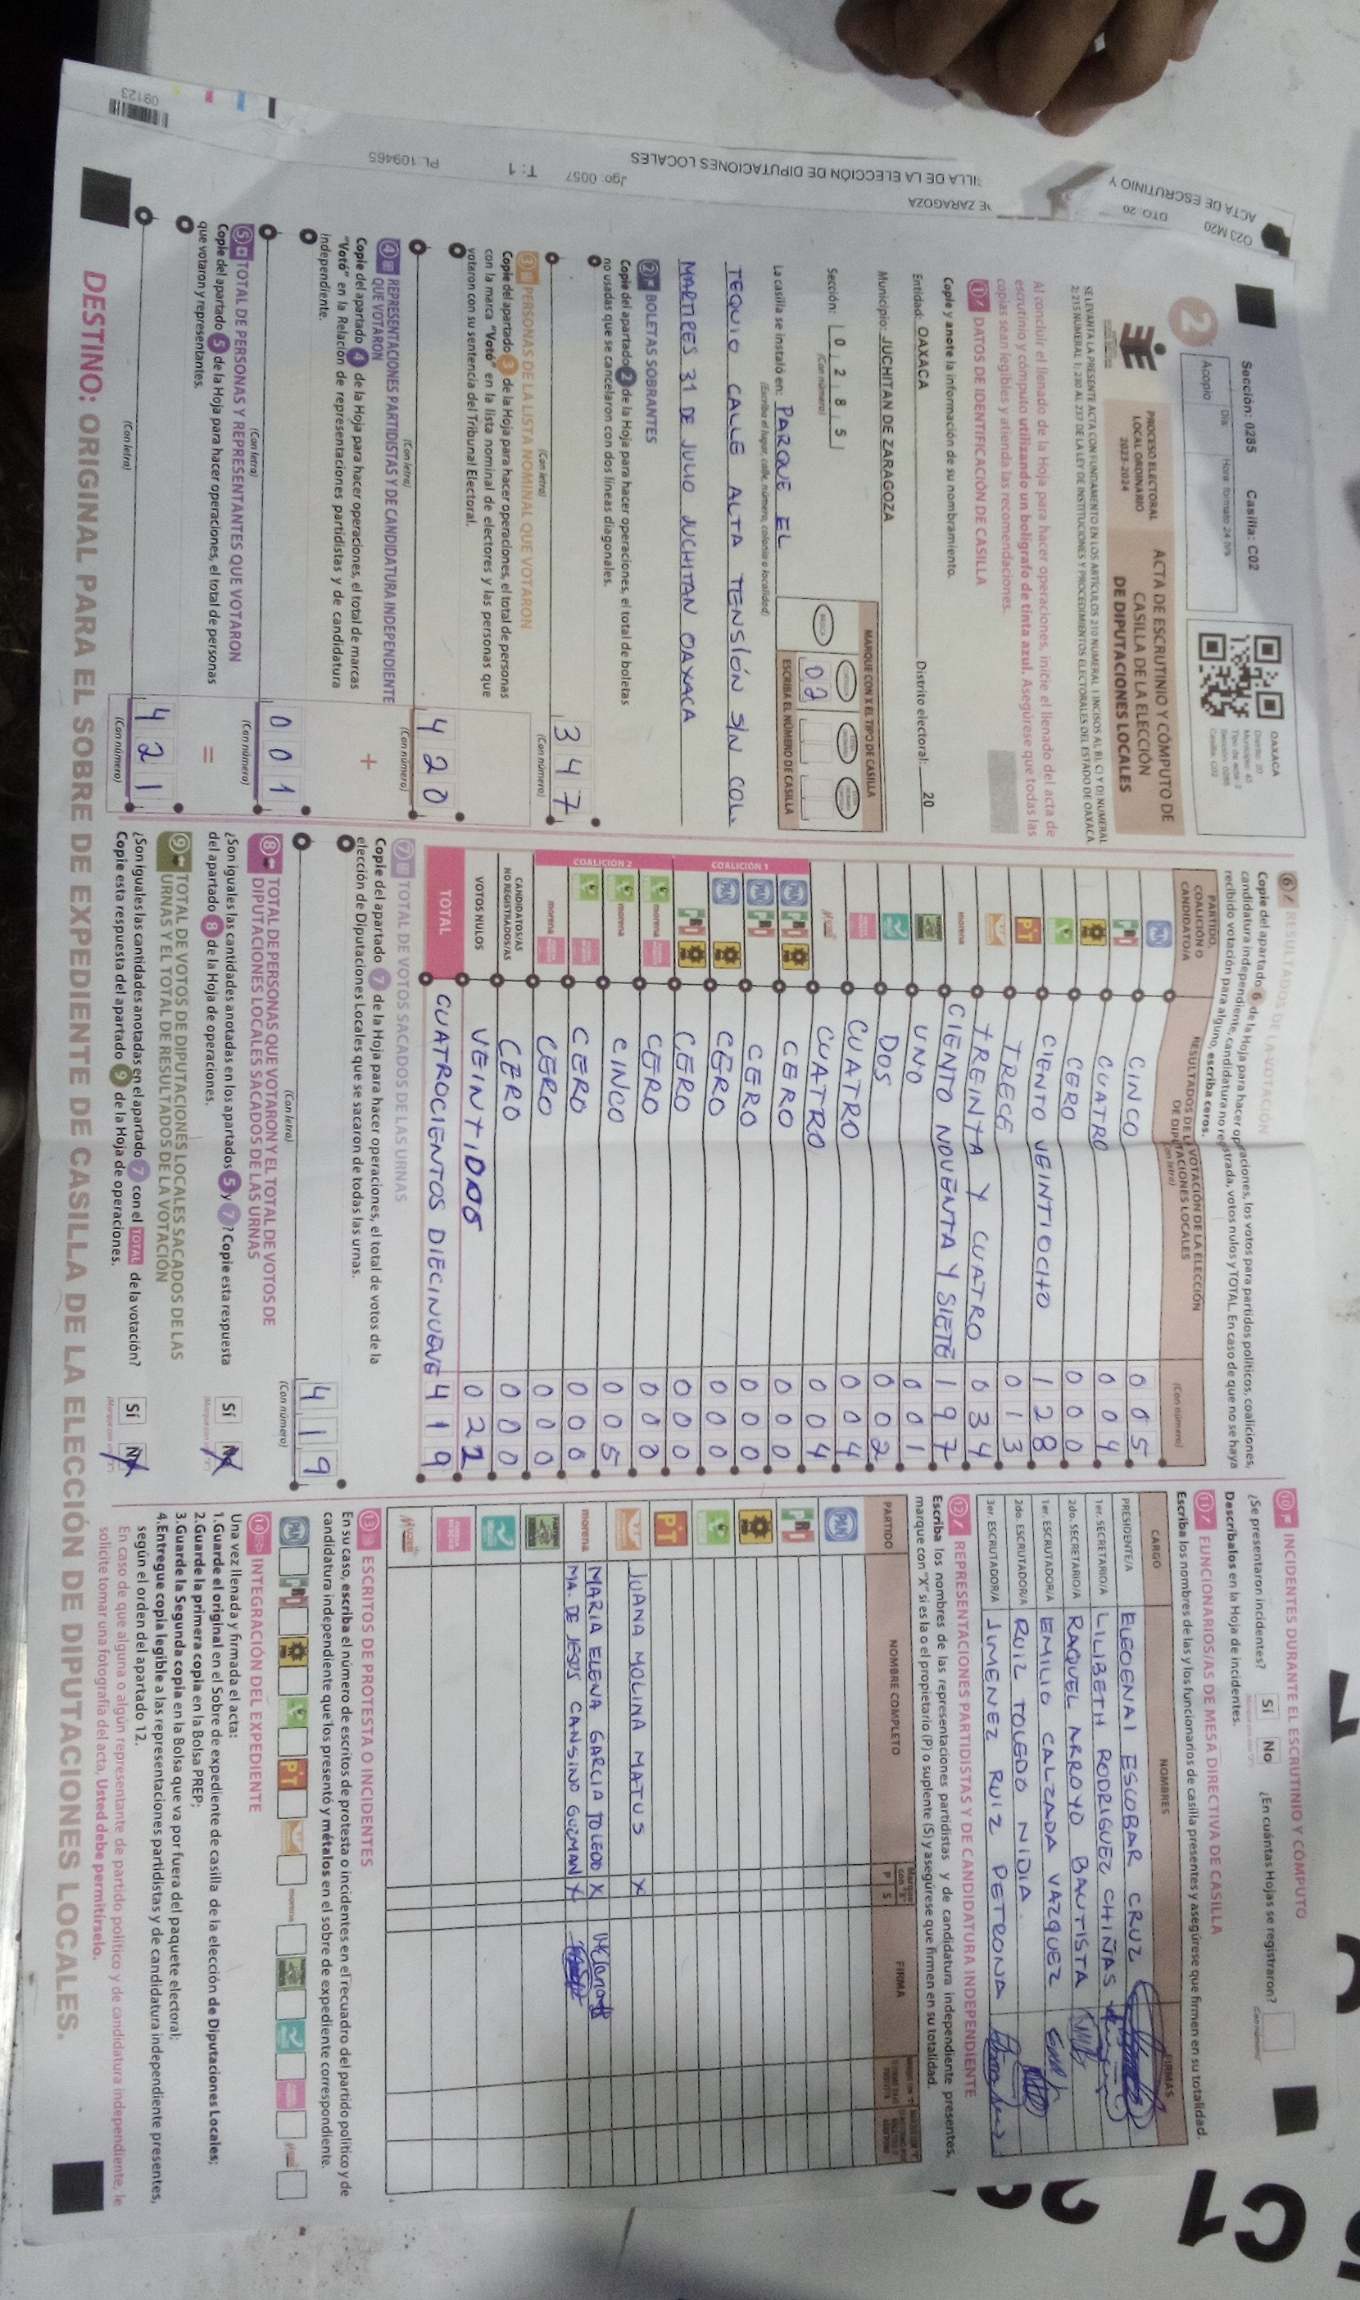 Sección: 0285 Casilla: C02
Día: Hora: formato 24 hrs
Acopio
2
OAXACA
PROCESO ELECTORAL
LOCAL ORDINARIO
2023-2024
ACTA DE ESCRUTINIO Y CÓMPUTO DE
CASILLA DE LA ELECCIÓN
DE DIPUTACIONES LOCALES
Al concluir el llenado de la Hoja para hacer operaciones, inicie el llenado del acta de
escrutinio y cómputo utilizando un bolígrafo de tinta azul. Asegúrese que todas las
copias sean legibles y atienda las recomendaciones.
1 DATOS DE IDENTIFICACIÓN DE CASILLA
Copie y anote la información de su nombramiento.
Entidad: OAXACA Distrito electoral: 20
Municipio: JUCHITAN DE ZARAGOZA
Sección: 0 2 8 5
(Con número)
MARQUE CON X EL TIPO DE CASILLA
ESCRIBA EL NÚMERO DE CASILLA
02
La casilla se instaló en: PARQUE EL
(Escriba el lugar, calle, número, colonia o localidad)
TEQUIO CALLE ALTA TENSIÓN SIN COL.
MARTIRES 31 DE JULIO JUCHITAN OAXACA
2 BOLETAS SOBRANTES
Copie del apartado 2 de la Hoja para hacer operaciones, el total de boletas
no usadas que se cancelaron con dos líneas diagonales.
347
(Con letra) (Con número)
3 PERSONAS DE LA LISTA NOMINAL QUE VOTARON
Copie del apartado 3 de la Hoja para hacer operaciones, el total de personas
con la marca "Votó" en la lista nominal de electores y las personas que
votaron con su sentencia del Tribunal Electoral.
420
(Con letra) (Con número)
4 REPRESENTACIONES PARTIDISTAS Y DE CANDIDATURA INDEPENDIENTE
QUE VOTARON
Copie del apartado 4 de la Hoja para hacer operaciones, el total de marcas
"Votó" en la Relación de representaciones partidistas y de candidatura
independiente.
+
001
(Con letra) (Con número)
5 TOTAL DE PERSONAS Y REPRESENTANTES QUE VOTARON
Copie del apartado 5 de la Hoja para hacer operaciones, el total de personas
que votaron y representantes.
=
421
(Con letra) (Con número)
6 RESULTADOS DE LA VOTACIÓN
Copie del apartado 6 de la Hoja para hacer operaciones, los votos para partidos políticos, coaliciones,
candidatura independiente, candidatura no registrada, votos nulos y TOTAL. En caso de que no se haya
recibido votación para alguno, escriba ceros.
PARTIDO,
COALICIÓN O
CANDIDATO/A
RESULTADOS DE LA VOTACIÓN DE LA ELECCIÓN
DE DIPUTACIONES LOCALES
(Con letra) (Con número)
PAN CINCO 005
PRI CUATRO 004
CERO 000
CIENTO VEINTIOCHO 128
PT TRECE 013
TREINTA Y CUATRO 034
morena CIENTO NOVENTA Y SIETE 197
UNO 001
DOS 002
CUATRO 004
CUATRO 004
COALICIÓN 1
PAN PRI CERO 000
PAN PRI CERO 000
PAN CERO 000
PRI CERO 000
COALICIÓN 2
morena CERO 000
morena CINCO 005
CERO 000
morena CERO 000
CANDIDATOS/AS
NO REGISTRADOS/AS CERO 000
VOTOS NULOS VEINTIDOS 022
TOTAL CUATROCIENTOS DIECINUEVE 419
7 TOTAL DE VOTOS SACADOS DE LAS URNAS
Copie del apartado 7 de la Hoja para hacer operaciones, el total de votos de la
elección de Diputaciones Locales que se sacaron de todas las urnas.
419
(Con letra) (Con número)
8 TOTAL DE PERSONAS QUE VOTARON Y EL TOTAL DE VOTOS DE
DIPUTACIONES LOCALES SACADOS DE LAS URNAS
¿Son iguales las cantidades anotadas en los apartados 5 y 7? Copie esta respuesta
del apartado 8 de la Hoja de operaciones.
Sí No
9 TOTAL DE VOTOS DE DIPUTACIONES LOCALES SACADOS DE LAS
URNAS Y EL TOTAL DE RESULTADOS DE LA VOTACIÓN
¿Son iguales las cantidades anotadas en el apartado 7 con el TOTAL de la votación?
Copie esta respuesta del apartado 9 de la Hoja de operaciones.
Sí No
10 INCIDENTES DURANTE EL ESCRUTINIO Y CÓMPUTO
¿Se presentaron incidentes? Sí No ¿En cuántas Hojas se registraron?
Descríbalos en la Hoja de incidentes.
11 FUNCIONARIOS/AS DE MESA DIRECTIVA DE CASILLA
Escriba los nombres de las y los funcionarios de casilla presentes y asegúrese que firmen en su totalidad.
CARGO NOMBRES FIRMAS
PRESIDENTE/A ELEOENAI ESCOBAR CRUZ
1er. SECRETARIO/A LILIBETH RODRIGUEZ CHIÑAS
2do. SECRETARIO/A RAQUEL ARROYO BAUTISTA
1er. ESCRUTADOR/A EMILIO CALZADA VAZQUEZ
2do. ESCRUTADOR/A RUIZ TOLEDO NIDIA
3er. ESCRUTADOR/A JIMENEZ RUIZ PETRONA
12 REPRESENTACIONES PARTIDISTAS Y DE CANDIDATURA INDEPENDIENTE
Escriba los nombres de las representaciones partidistas y de candidatura independiente presentes,
marque con "X" si es la o el propietario (P) o suplente (S) y asegúrese que firmen en su totalidad.
PARTIDO NOMBRE COMPLETO P S FIRMA
PAN
PRI
PT
JUANA MOLINA MATUS X
morena MARIA ELENA GARCIA TOLEDO X
MA. DE JESUS CANSINO GUZMAN X
13 ESCRITOS DE PROTESTA O INCIDENTES
En su caso, escriba el número de escritos de protesta o incidentes en el recuadro del partido político y de
candidatura independiente que los presentó y métalos en el sobre de expediente correspondiente.
PAN PRI PT morena
14 INTEGRACIÓN DEL EXPEDIENTE
Una vez llenada y firmada el acta:
1.Guarde el original en el Sobre de expediente de casilla de la elección de Diputaciones Locales;
2.Guarde la primera copia en la Bolsa PREP;
3.Guarde la Segunda copia en la Bolsa que va por fuera del paquete electoral;
4.Entregue copia legible a las representaciones partidistas y de candidatura independiente presentes,
según el orden del apartado 12.
En caso de que alguna o algún representante de partido político y de candidatura independiente, le
solicite tomar una fotografía del acta, Usted debe permitírselo.
DESTINO: ORIGINAL PARA EL SOBRE DE EXPEDIENTE DE CASILLA DE LA ELECCIÓN DE DIPUTACIONES LOCALES.
023 M20
ACTA DE ESCRUTINIO Y
DTO. 20
DE ZARAGOZA
SILLA DE LA ELECCIÓN DE DIPUTACIONES LOCALES
Jgo: 0057
T: 1
PL: 109465
09123
C1